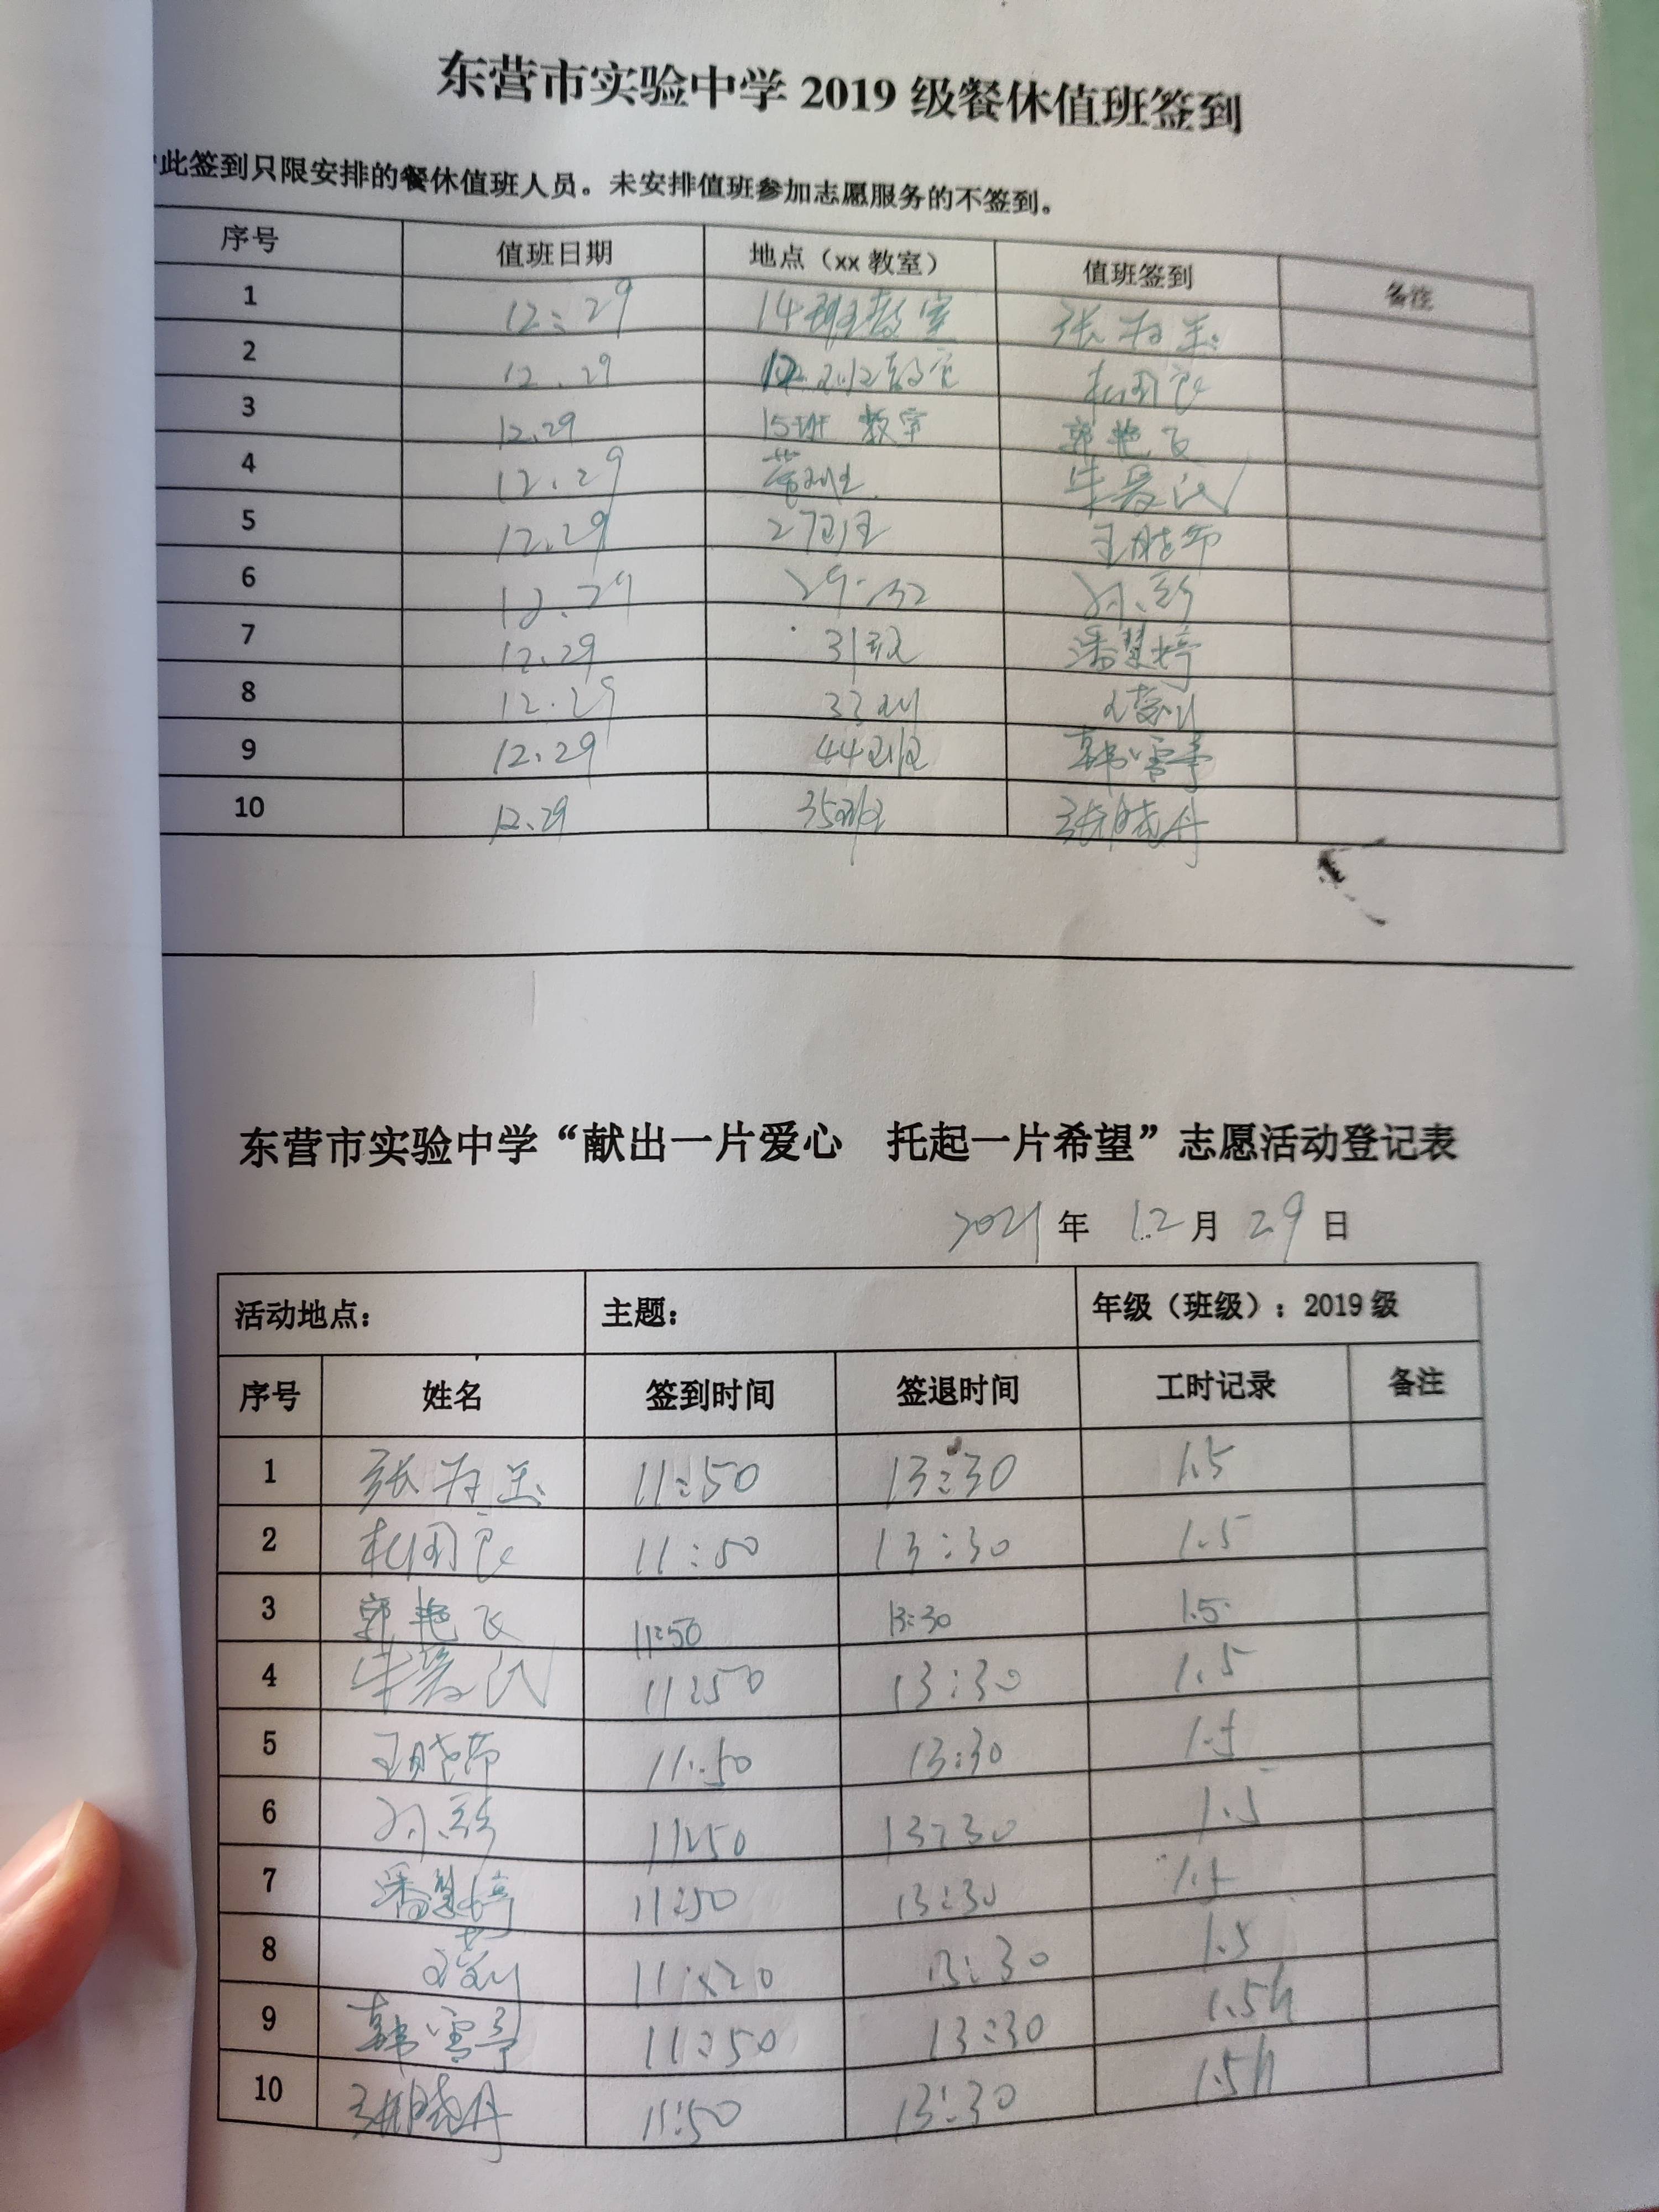 东营市实验中学 2019 级餐休值班签到
此签到只限安排的餐休值班人员。未安排值班参加志愿服务的不签到。
序号 值班日期 地点（xx 教室） 值班签到 备注
1 12:29 14班教室 张
2 12.29 教室
3 12.29 15班 教室 郭艳飞
4 12.29 牛
5 12.29 27班 王晓
6 12.29 29
7 12.29 31班 潘慧婷
8 12.29 33班
9 12.29 44班 韩雪亭
10 12.29 35班 张晓丹
东营市实验中学“献出一片爱心 托起一片希望”志愿活动登记表
2021 年 12 月 29 日
活动地点： 主题： 年级（班级）：2019 级
序号 姓名 签到时间 签退时间 工时记录 备注
1 张 11:50 13:30 1.5
2 11:50 13:30 1.5
3 郭艳飞 11:50 13:30 1.5
4 牛 11:50 13:30 1.5
5 王晓 11:50 13:30 1.5
6 11:50 13:30 1.5
7 潘慧婷 11:50 13:30 1.5
8 13:30 1.5
9 韩雪亭 11:50 13:30 1.5h
10 张晓丹 11:50 13:30 1.5h